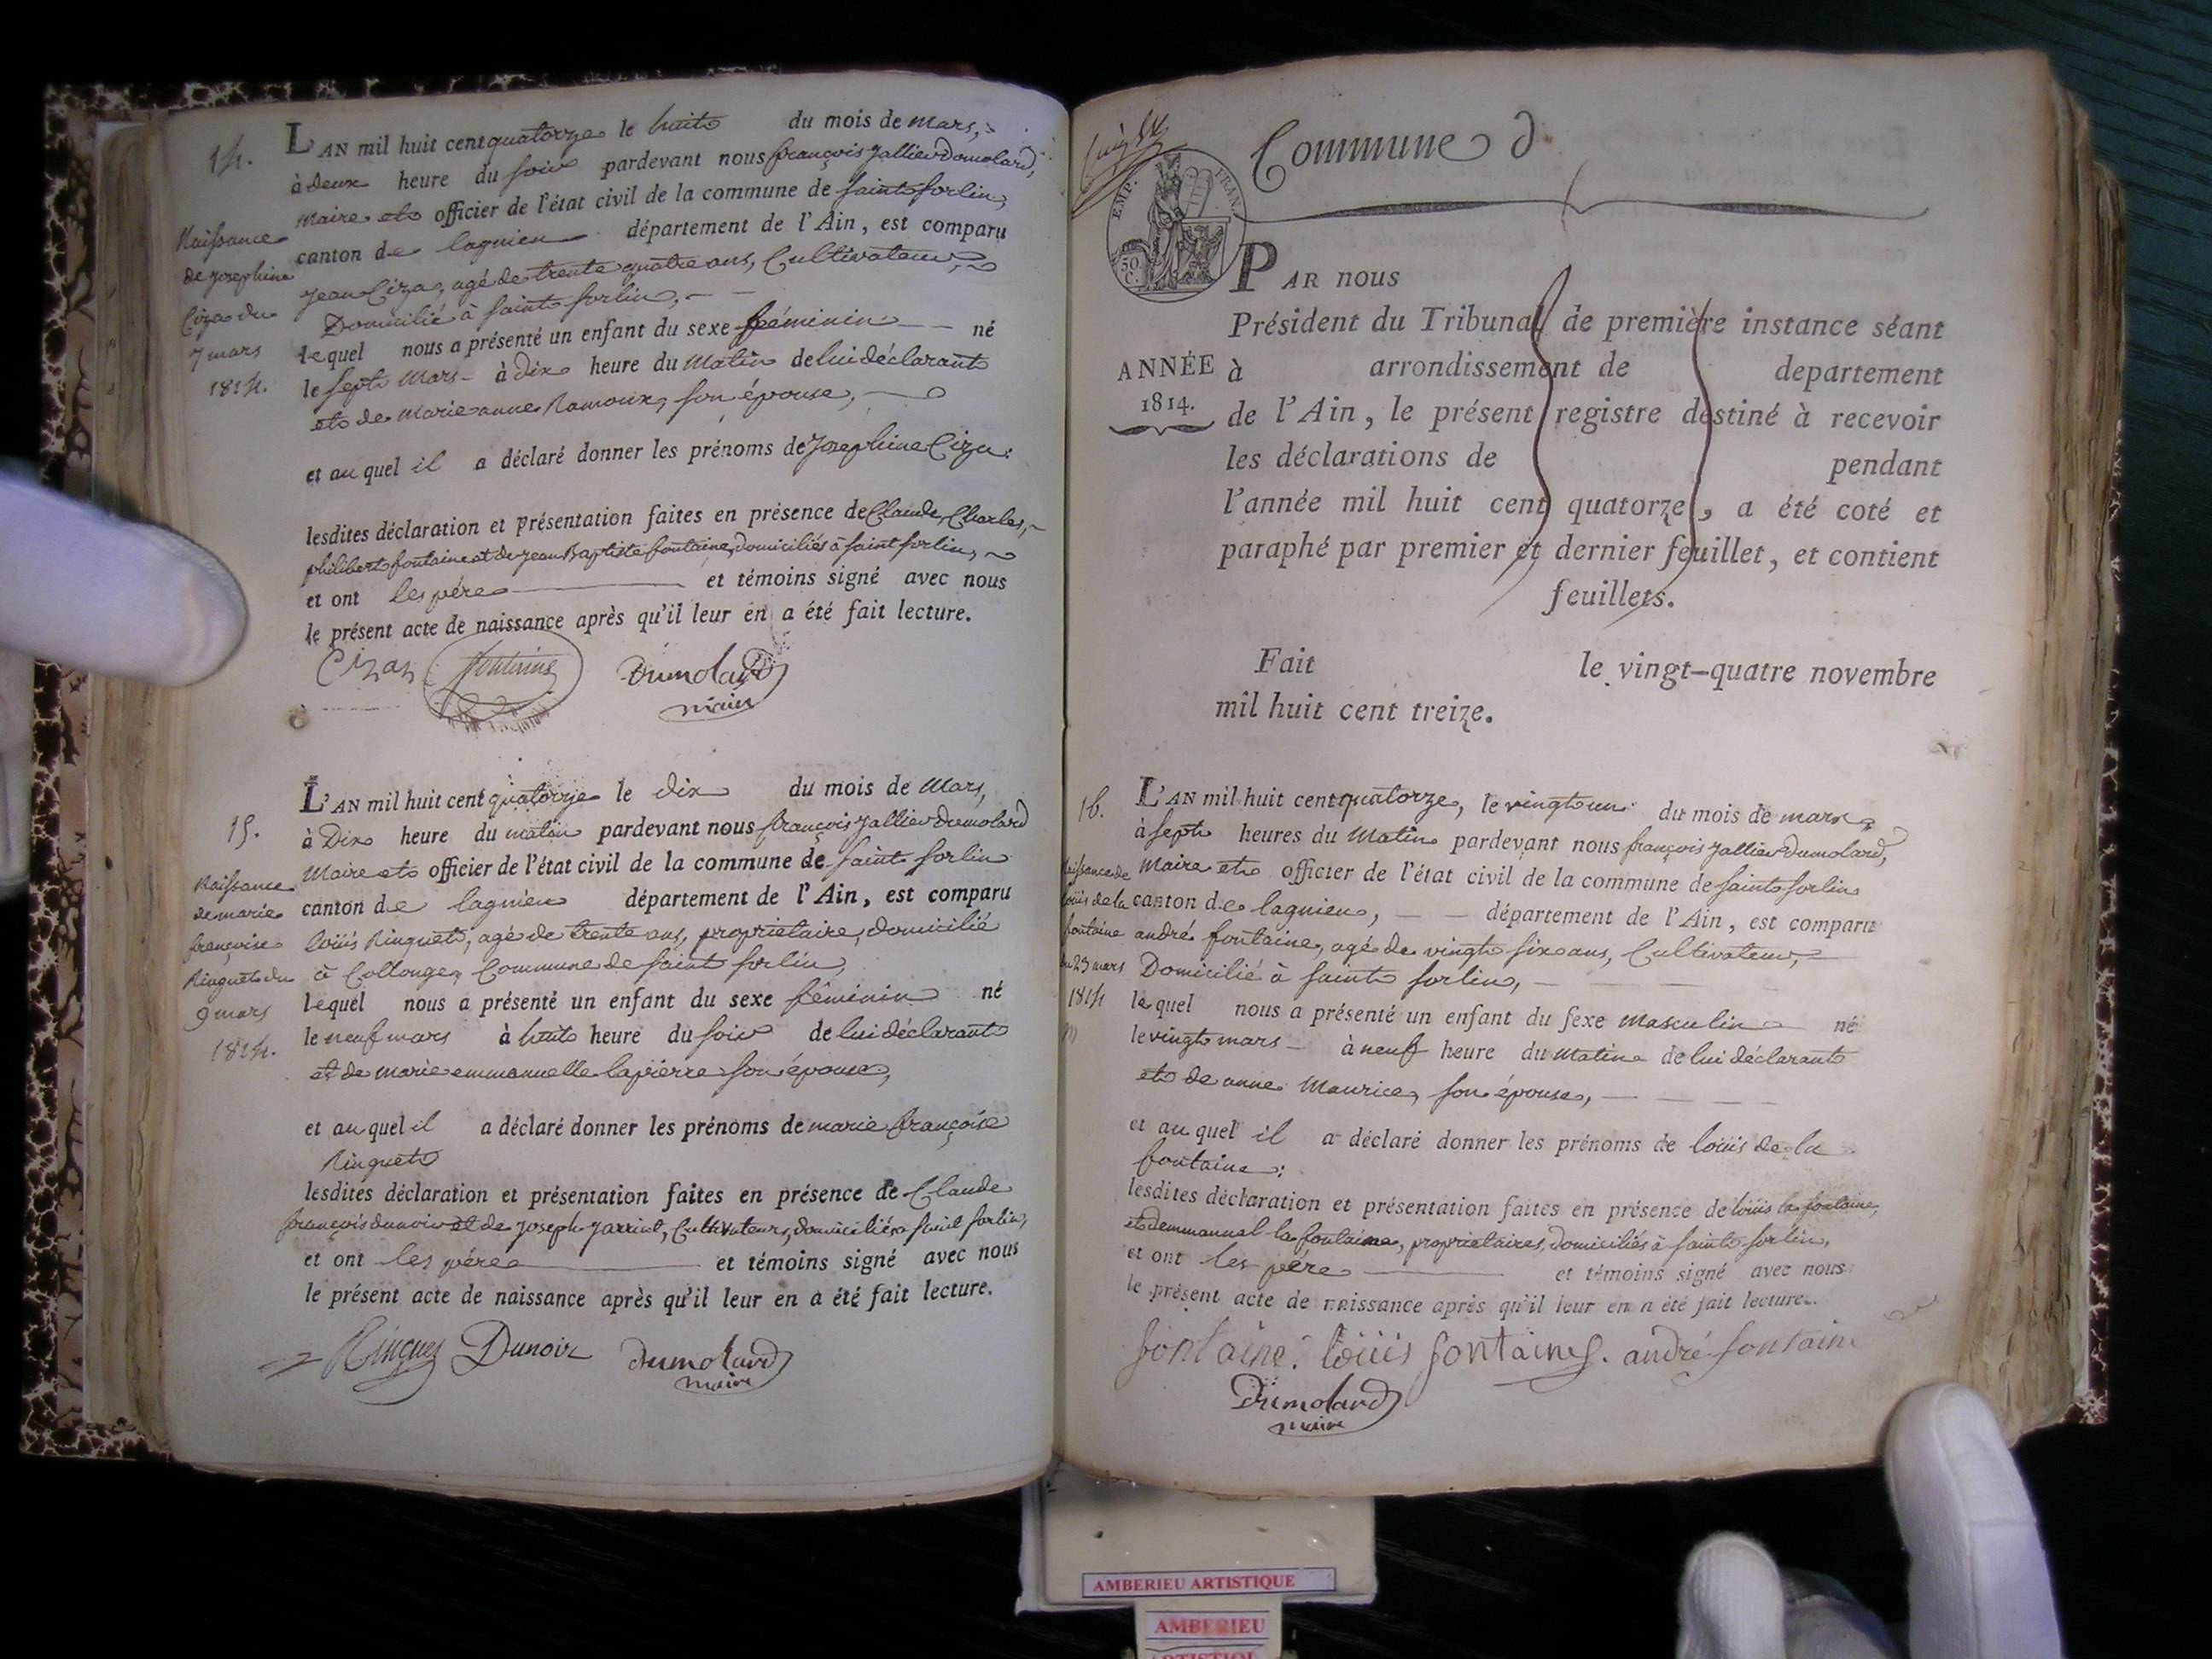 14.
L'AN mil huit cent quatorze le huit du mois de mars,
à deux heure du soir pardevant nous françois Jallier Dumolard,
maire et officier de l'état civil de la commune de saint sorlin,
canton de lagnieu département de l'Ain, est comparu
jean Cizas, agé de trente quatre ans, Cultivateur,
Domicilié à saint sorlin,
lequel nous a présenté un enfant du sexe féminin né
le sept Mars à dix heure du Matin de lui déclarant
et de Marie anne Ramoux, son épouse,
et auquel il a déclaré donner les prénoms de Josephine Cizas
lesdites déclaration et présentation faites en présence de Claude, Charles,
philibert fontaine et de jean Baptiste fontaine, domiciliés à saint sorlin,
et ont les pére et témoins signé avec nous
le présent acte de naissance après qu'il leur en a été fait lecture.
Cizas fontaine Dumolard
maire
Naissance
de Josephine
Cizas du
7 mars
1814.
15.
L'AN mil huit cent quatorze le dix du mois de Mars,
à Dix heure du matin pardevant nous françois Jallier Dumolard
Maire et officier de l'état civil de la commune de saint sorlin
canton de lagnieu département de l'Ain, est comparu
louis Ringuet, agé de trente ans, propriétaire, domicilié
à Collonges, Commune de saint sorlin,
lequel nous a présenté un enfant du sexe féminin né
le neuf mars à huit heure du soir de lui déclarant
et de marie emmanuelle lapierre son épouse,
et auquel il a déclaré donner les prénoms de marie françoise
Ringuet
lesdites déclaration et présentation faites en présence de Claude
françois dunoir et de Joseph Jarriot, Cultivateurs, domiciliés à saint sorlin,
et ont les pére et témoins signé avec nous
le présent acte de naissance après qu'il leur en a été fait lecture.
Ringuet Dunoir dumolard
maire
Naissance
de marie
françoise
Ringuet du
9 mars
1814.
Commune d
EMP. FRAN.
50 C.
PAR nous
Président du Tribunal de première instance séant
ANNÉE
1814.
à arrondissement de departement
de l'Ain, le présent registre destiné à recevoir
les déclarations de pendant
l'année mil huit cent quatorze, a été coté et
paraphé par premier et dernier feuillet, et contient
feuillets.
Fait le vingt-quatre novembre
mil huit cent treize.
16.
L'AN mil huit cent quatorze, le vingt un du mois de mars
à sept heures du Matin pardevant nous françois Jallier Dumolard,
Maire et officier de l'état civil de la commune de saint sorlin
canton de lagnieu, département de l'Ain, est comparu
andré fontaine, agé de vingt six ans, Cultivateur,
Domicilié à saint sorlin,
lequel nous a présenté un enfant du sexe masculin né
le vingt mars à neuf heure du matin de lui déclarant
et de anne Maurice, son épouse,
et auquel il a déclaré donner les prénoms de louis de la
fontaine;
lesdites déclaration et présentation faites en présence de louis la fontaine,
et demmanual la fontaine, propriétaires, domiciliés à saint sorlin,
et ont les pére et témoins signé avec nous
le présent acte de naissance après qu'il leur en a été fait lecture.
fontaine. louis fontaines. andré fontaine
Dumolard
maire
Naissance de
louis de la
fontaine
mars
1814
AMBERIEU ARTISTIQUE
AMBERIEU
ARTISTIQUE